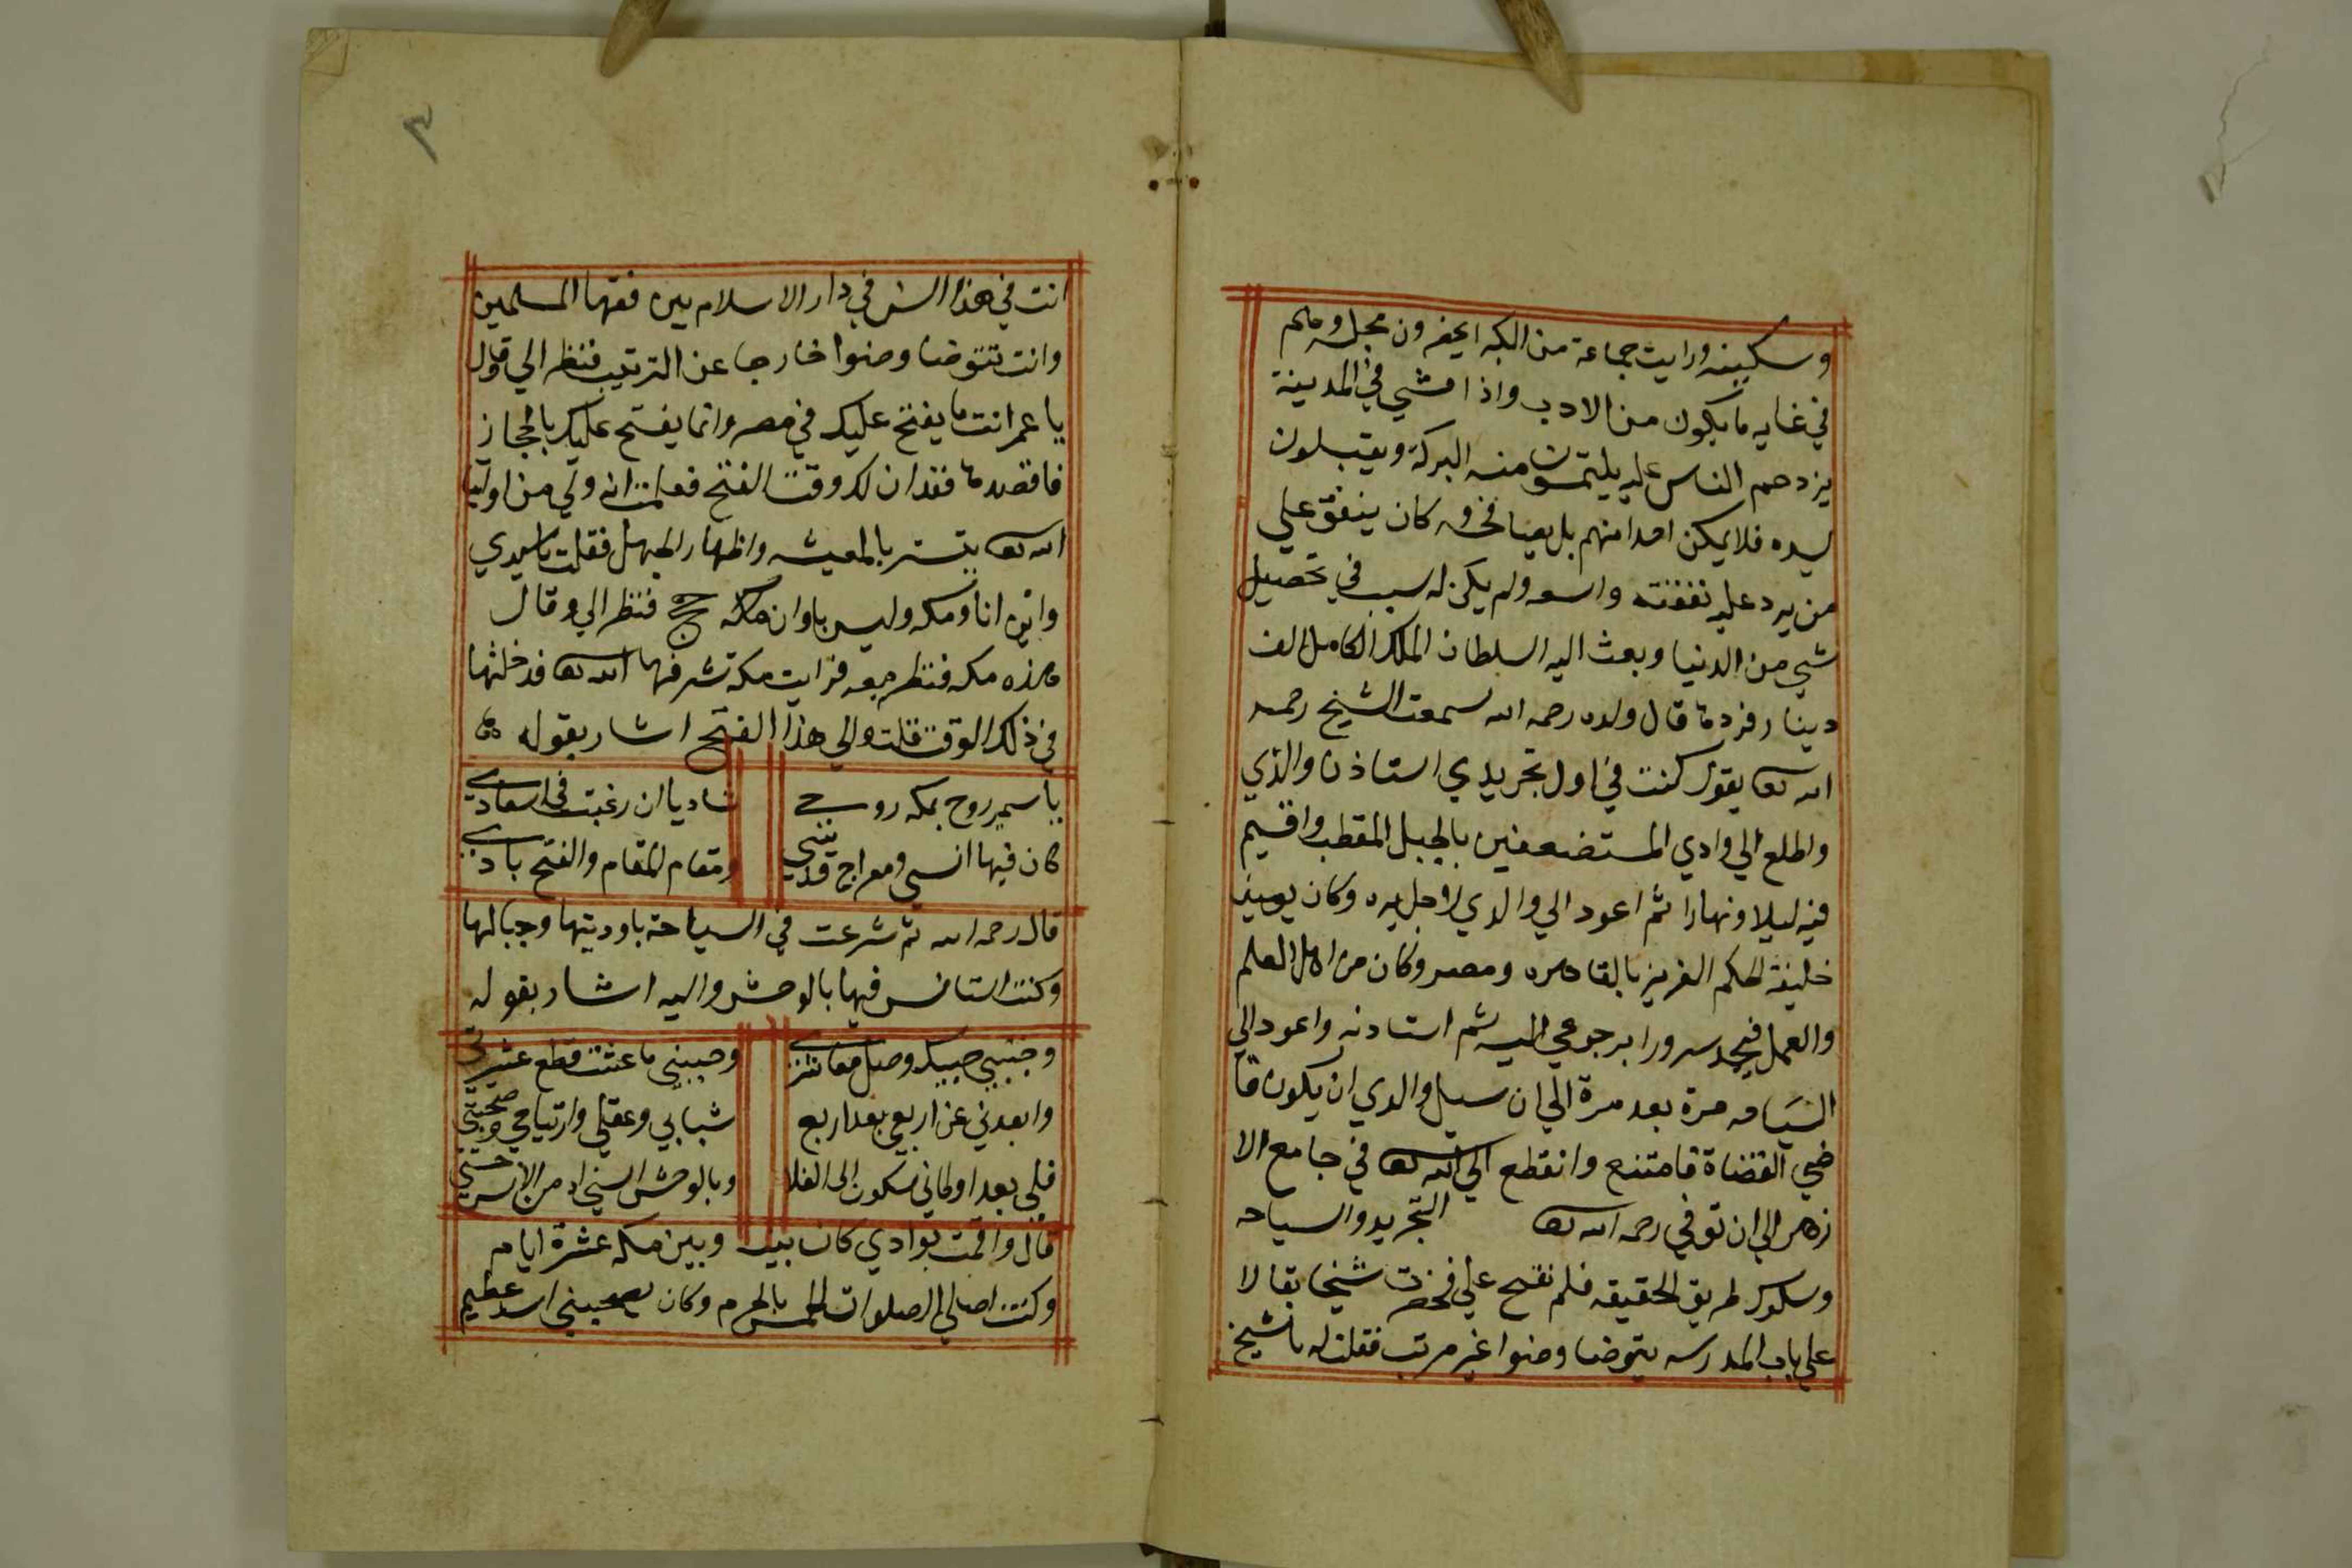 وسكينه ورايت جماعة من الكبرا يحضرون مجلسه وهم
في غايه ما يكون من الادب واذا مشي في المدينة
يزدحم الناس عليه يلتمسون منه البركة ويقبلون
ليده فلا يمكن احدا منهم بل يصافحه وكان ينفق علي
من يرد عليه نفقته واسعه ولم يكن له سبب في تحصيل
شي من الدنيا وبعث اليه السلطان الملك الكامل الف
دينار فردها قال ولده رحمه الله سمعت الشيخ رحمه
الله تعا يقول كنت في اول تجريدي استاذن والدي
واطلع الي وادي المستضعفين بالجبل المقطب واقيم
فيه ليلا ونهارا ثم اعود الي والدي لاجل بره وكان يوميذ
خليفة الحكم العزيز بالقاهره ومصر وكان من اهل العلم
والعمل فيجد سرورا برجوعي اليه ثم استادنه واعود الي
السياحه مرة بعد مرة الي ان سيل والدي ان يكون قا
ضي القضاة فامتنع وانقطع الي الله تعا في جامع الا
زهر الي ان توفي رحمه الله تعا التجريد والسياحه
وسلوك طريق الحقيقه فلم نفتح علي فحضرت شيخا بقالا
علي باب المدرسه يتوضا وضوا غير مرتب فقلت له يا شيخ
٣
انت في هذا السن في دار الاسلام بين فقها المسلمين
وانت تتوضا وضوا خارجا عن الترتيب فنظر الي وقال
يا عمر انت ما يفتح عليك في مصر وانما يفتح عليك بالحجاز
فاقصدها فقد ان لك وقت الفتح فعلمت انه ولي من اوليا
الله تعا يتستر بالمعيشه واظهار الجهل فقلت يا سيدي
واين انا ومكه وليس باوان مكه حج فنظر الي وقال
هذه مكه فنظر معه فرايت مكه شرفها الله تعا فدخلتها
في ذلك الوقت قلت والي هذا الفتح اشار بقوله
يا سمير روح بمكه روحي شاديا ان رغبت في اسعادي
كان فيها انسي ومعراج قدسي ومقام المقام والفتح بادي
قال رحمه الله ثم شرعت في السياحة باوديتها وجبالها
وكنت استانس فيها بالوحش واليه اشار بقوله
وجنبني حبيك وصل معاشري وحببني ما عشت قطع عشيرتي
وابعدني عن اربعي بعد اربع شبابي وعقلي وارتياحي وصحبتي
فلي بعد اوطاني سكون الى الفلا وبالوحش انسي اذ من الانس وحشتي
قال واقمت بوادي كان بينه وبين مكه عشرة ايام
وكنت اصلي الصلوات الخمس بالحرم وكان يصحبني اسد عظيم